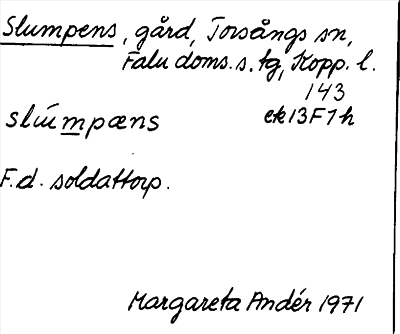 Slumpens, gård, Torsångs sn,
Falu doms. s. tg, Kopp. l.
143
slúmpæns
ek13F7h
F.d. soldattorp.
Margareta Andér 1971